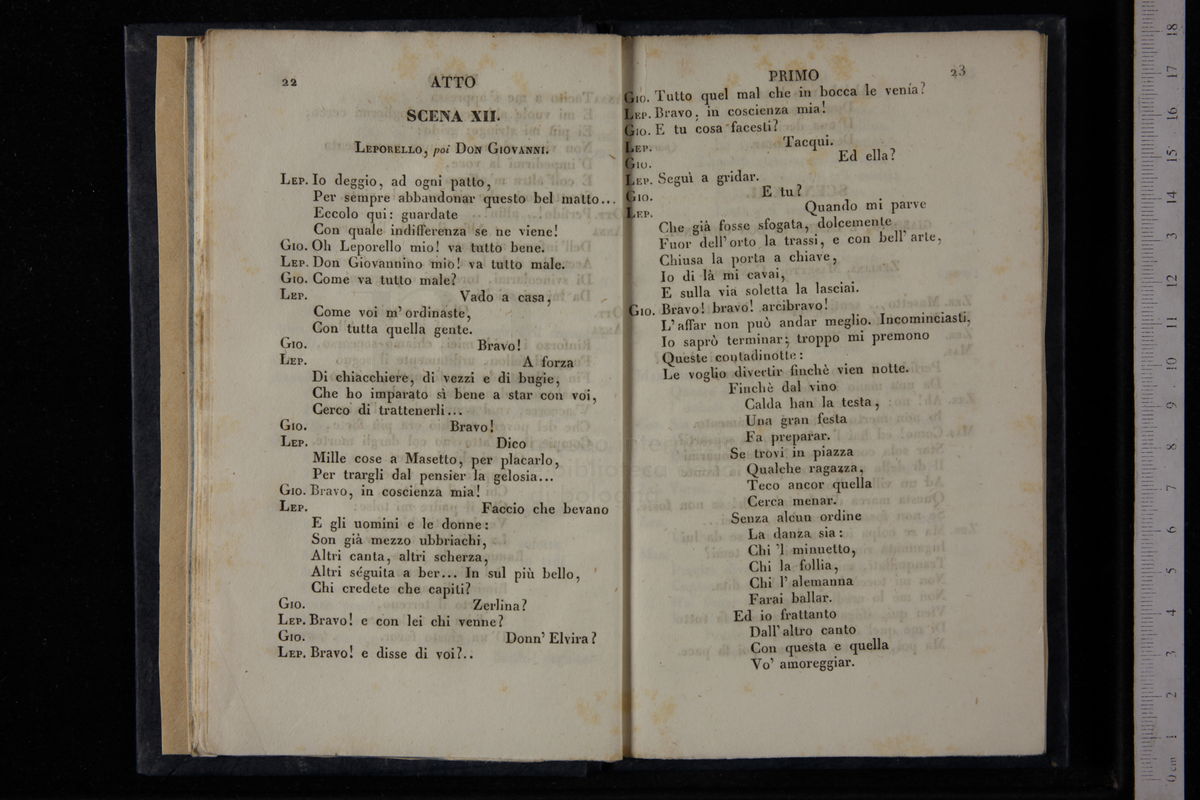 22 ATTO
SCENA XII.
LEPORELLO, poi DON GIOVANNI.
LEP. Io deggio, ad ogni patto,
Per sempre abbandonar questo bel matto...
Eccolo qui: guardate
Con quale indifferenza se ne viene!
GIO. Oh Leporello mio! va tutto bene.
LEP. Don Giovannino mio! va tutto male.
GIO. Come va tutto male?
LEP. Vado a casa,
Come voi m' ordinaste,
Con tutta quella gente.
GIO. Bravo!
LEP. A forza
Di chiacchiere, di vezzi e di bugie,
Che ho imparato sì bene a star con voi,
Cerco di trattenerli...
GIO. Bravo!
LEP. Dico
Mille cose a Masetto, per placarlo,
Per trargli dal pensier la gelosia...
GIO. Bravo, in coscienza mia!
LEP. Faccio che bevano
E gli uomini e le donne:
Son già mezzo ubbriachi,
Altri canta, altri scherza,
Altri séguita a ber... In sul più bello,
Chi credete che capiti?
GIO. Zerlina?
LEP. Bravo! e con lei chi venne?
GIO. Donn' Elvira?
LEP. Bravo! e disse di voi?..
PRIMO 23
GIO. Tutto quel mal che in bocca le venía?
LEP. Bravo, in coscienza mia!
GIO. E tu cosa facesti?
LEP. Tacqui.
GIO. Ed ella?
LEP. Seguì a gridar.
GIO. E tu?
LEP. Quando mi parve
Che già fosse sfogata, dolcemente
Fuor dell' orto la trassi, e con bell' arte,
Chiusa la porta a chiave,
Io di là mi cavai,
E sulla via soletta la lasciai.
GIO. Bravo! bravo! arcibravo!
L' affar non può andar meglio. Incominciasti,
Io saprò terminar; troppo mi premono
Queste contadinotte:
Le voglio divertir finchè vien notte.
Finchè dal vino
Calda han la testa,
Una gran festa
Fa preparar.
Se trovi in piazza
Qualche ragazza,
Teco ancor quella
Cerca menar.
Senza alcun ordine
La danza sia:
Chi 'l minuetto,
Chi la follia,
Chi l' alemanna
Farai ballar.
Ed io frattanto
Dall' altro canto
Con questa e quella
Vo' amoreggiar.
0 cm 1 2 3 4 5 6 7 8 9 10 11 12 13 14 15 16 17 18